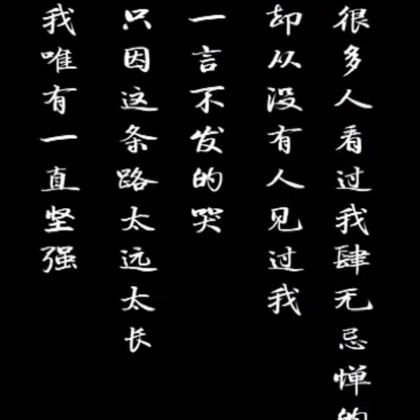 很多人看过我肆无忌惮的
却从没有人见过我
一言不发的哭
只因这条路太远太长
我唯有一直坚强